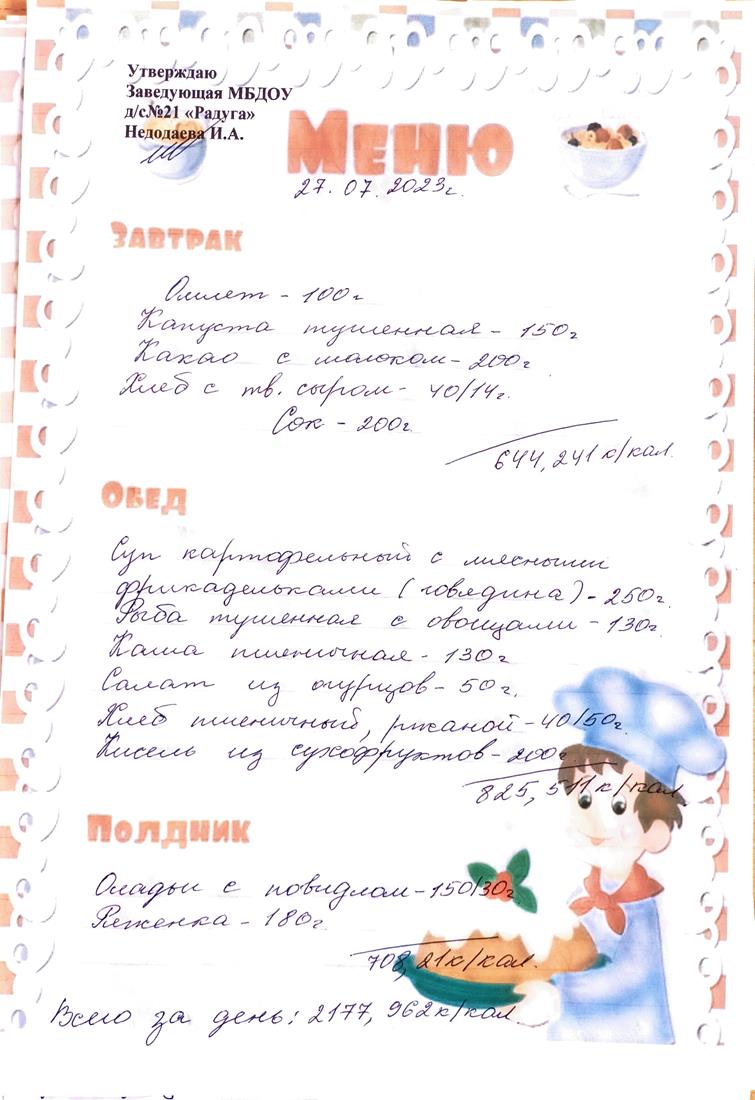 Утверждаю
Заведующая МБДОУ
д/с№21 «Радуга»
Недодаева И.А.
Меню
27.07.2023г.
Завтрак
Омлет - 100г
Капуста тушенная - 150г
Какао с молоком - 200г
Хлеб с тв. сыром - 40/14г.
Сок - 200г.
644,241 к/кал.
Обед
Суп картофельный с мясными
фрикадельками (говядина) - 250г.
Рыба тушенная с овощами - 130г.
Каша пшеничная - 130г
Салат из огурцов - 50г.
Хлеб пшеничный, ржаной - 40/50г.
Кисель из сухофруктов - 200г.
825,511 к/кал.
Полдник
Оладьи с повидлом - 150/30г
Ряженка - 180г.
708,21 к/кал.
Всего за день: 2177,962 к/кал.